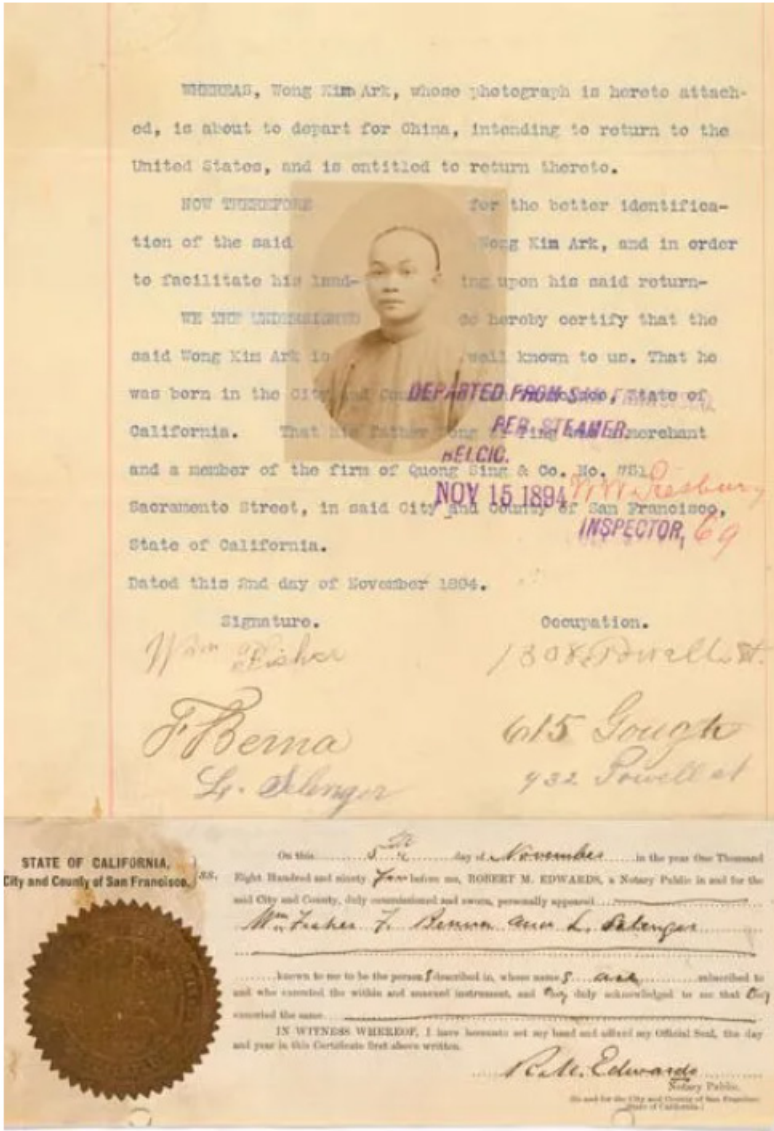 WHEREAS, Wong Kim Ark, whose photograph is hereto attach-
ed, is about to depart for China, intending to return to the
United States, and is entitled to return thereto.
NOW THEREFORE for the better identifica-
tion of the said Wong Kim Ark, and in order
to facilitate his land- ing upon his said return-
WE THE UNDERSIGNED do hereby certify that the
said Wong Kim Ark is well known to us. That he
was born in the City and State of
DEPARTED FROM SAN FRANCISCO
California. That his father merchant
PER STEAMER
BELGIC.
and a member of the firm of Quong Sing & Co. No. 751
NOV 15 1894
Sacramento Street, in said City and County of San Francisco,
INSPECTOR, 69
State of California.
Dated this 2nd day of November 1894.
Signature. Occupation.
Wm Fisher 1308 Powell St.
F Berna 615 Gough
L. Selenger 932 Powell st
STATE OF CALIFORNIA,
City and County of San Francisco. ss.
On this 5th day of November in the year One Thousand
Eight Hundred and ninety before me, ROBERT M. EDWARDS, a Notary Public in and for the
said City and County, duly commissioned and sworn, personally appeared
Wm Fisher F. Berna and L. Selenger
known to me to be the persons described in, whose names are subscribed to
and who executed the within and annexed instrument, and they duly acknowledged to me that they
executed the same.
IN WITNESS WHEREOF, I have hereunto set my hand and affixed my Official Seal, the day
and year in this Certificate first above written.
R. M. Edwards
Notary Public,
In and for the City and County of San Francisco
State of California.